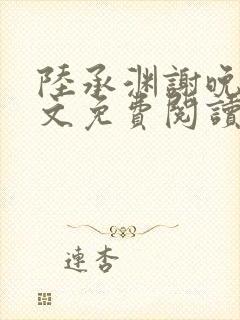 陸承淵謝晚
文免費閱讀
連杏